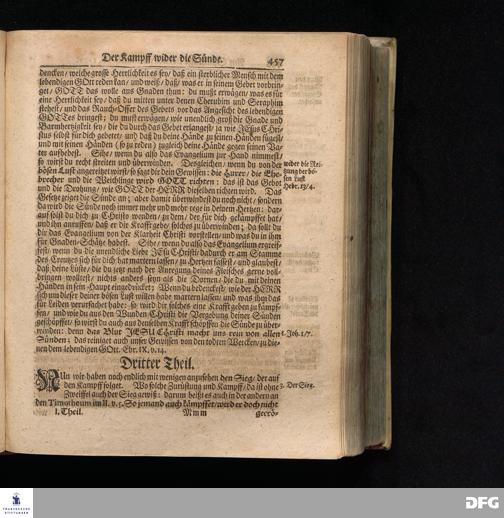 Der Kampff wider die Sünde. 457
dencken/ welche grosse Herrlichkeit es sey/ daß ein sterblicher Mensch mit dem
lebendigen GOtt reden kan/ und weiß/ daß/ was er in seinem Gebet vorbrin-
get/ GOTT das wolle aus Gnaden thun: du must erwägen/ was es für
eine Herrlichkeit sey/ daß du mitten unter denen Cherubim und Seraphim
stehest/ und das Rauch-Offer des Gebets vor das Angesicht des lebendigen
GOTTes bringest; du must erwägen/ wie unendlich groß die Gnade und
Barmhertzigkeit sey/ die du durch das Gebet erlangest/ ja wie JEsus Chri-
stus selbst zu dich gebetet/ und daß du deine Hände zu seinen Händen fügest/
und mit seinen Händen (so zu reden) zugleich deine Hände gegen seinen Va-
ter aufhebest. Sihe/ wenn du also das Evangelium zur Hand nimmest/
so wirst du recht streiten und überwinden. Desgleichen/ wenn du von der
bösen Lust angereitzet wirst/ so sagt dir dein Gewissen: die Hurer/ die Ehe-
brecher und die Weichlinge wird GOTT richten: das ist das Gebot
und die Drohung/ wie GOTT der HERR dieselben richten wird. Das
Gesetze zeiget die Sünde an; aber damit überwindest du noch nicht/ sondern
da wird die Sünde noch immer mehr und mehr rege in deinem Hertzen: dar-
auf solst du dich zu Christo wenden/ zu dem/ der für dich gekämpffet hat/
und ihn anruffen/ daß er dir Krafft gebe/ solches zu überwinden; da solst du
dir das Evangelium von der Klarheit Christi vorstellen/ und was du in ihm
für Gnaden-Schätze habest. Sihe/ wenn du also das Evangelium ergreif-
fest/ wenn du die unendliche Liebe JEsu Christi/ dadurch er am Stamme
des Creutzes sich für dich hat martern lassen/ zu Hertzen fassest/ und glaubest/
daß deine Lüste/ die du jetzt nach der Anregung deines Fleisches gerne voll-
bringen wöltest/ nichts anders seyn als die Dornen/ die du mit deinen
Händen in sein Haupt eingedrücket: Wenn du bedenckest/ wie der HERR
sich um dieser deiner bösen Lust willen habe martern lassen/ und was ihm das
für Leiden verursachet habe: so wird dir solches eine Krafft geben zu kämpf-
fen/ und wie du aus den Wunden Christi die Vergebung deiner Sünden
geschöpffet/ so wirst du auch aus denselben Krafft schöpffen die Sünde zu über-
winden: denn das Blut JESU Christi macht uns rein von allen
Sünden; das reiniget auch unser Gewissen von den todten Wercken/ zu die-
nen dem lebendigen GOtt. Ebr. IX, v. 14.
wider die Rei-
tzung der bö-
sen Lust
Hebr. 13/4.
1. Joh. 1/7.
Dritter Theil.
NUn wir haben noch endlich mit wenigen anzusehen den Sieg/ der auf
den Kampff folget. Wo solche Zurüstung und Kampff/ da ist ohne
Zweiffel auch der Sieg gewiß: darum heißt es auch in der andern an
den Timotheum im II. v. 5. So jemand auch kämpffet/ wird er doch nicht
3. Der Sieg.
I. Theil. Mmm gecrö-
FRANCKESCHE
STIFTUNGEN
DFG